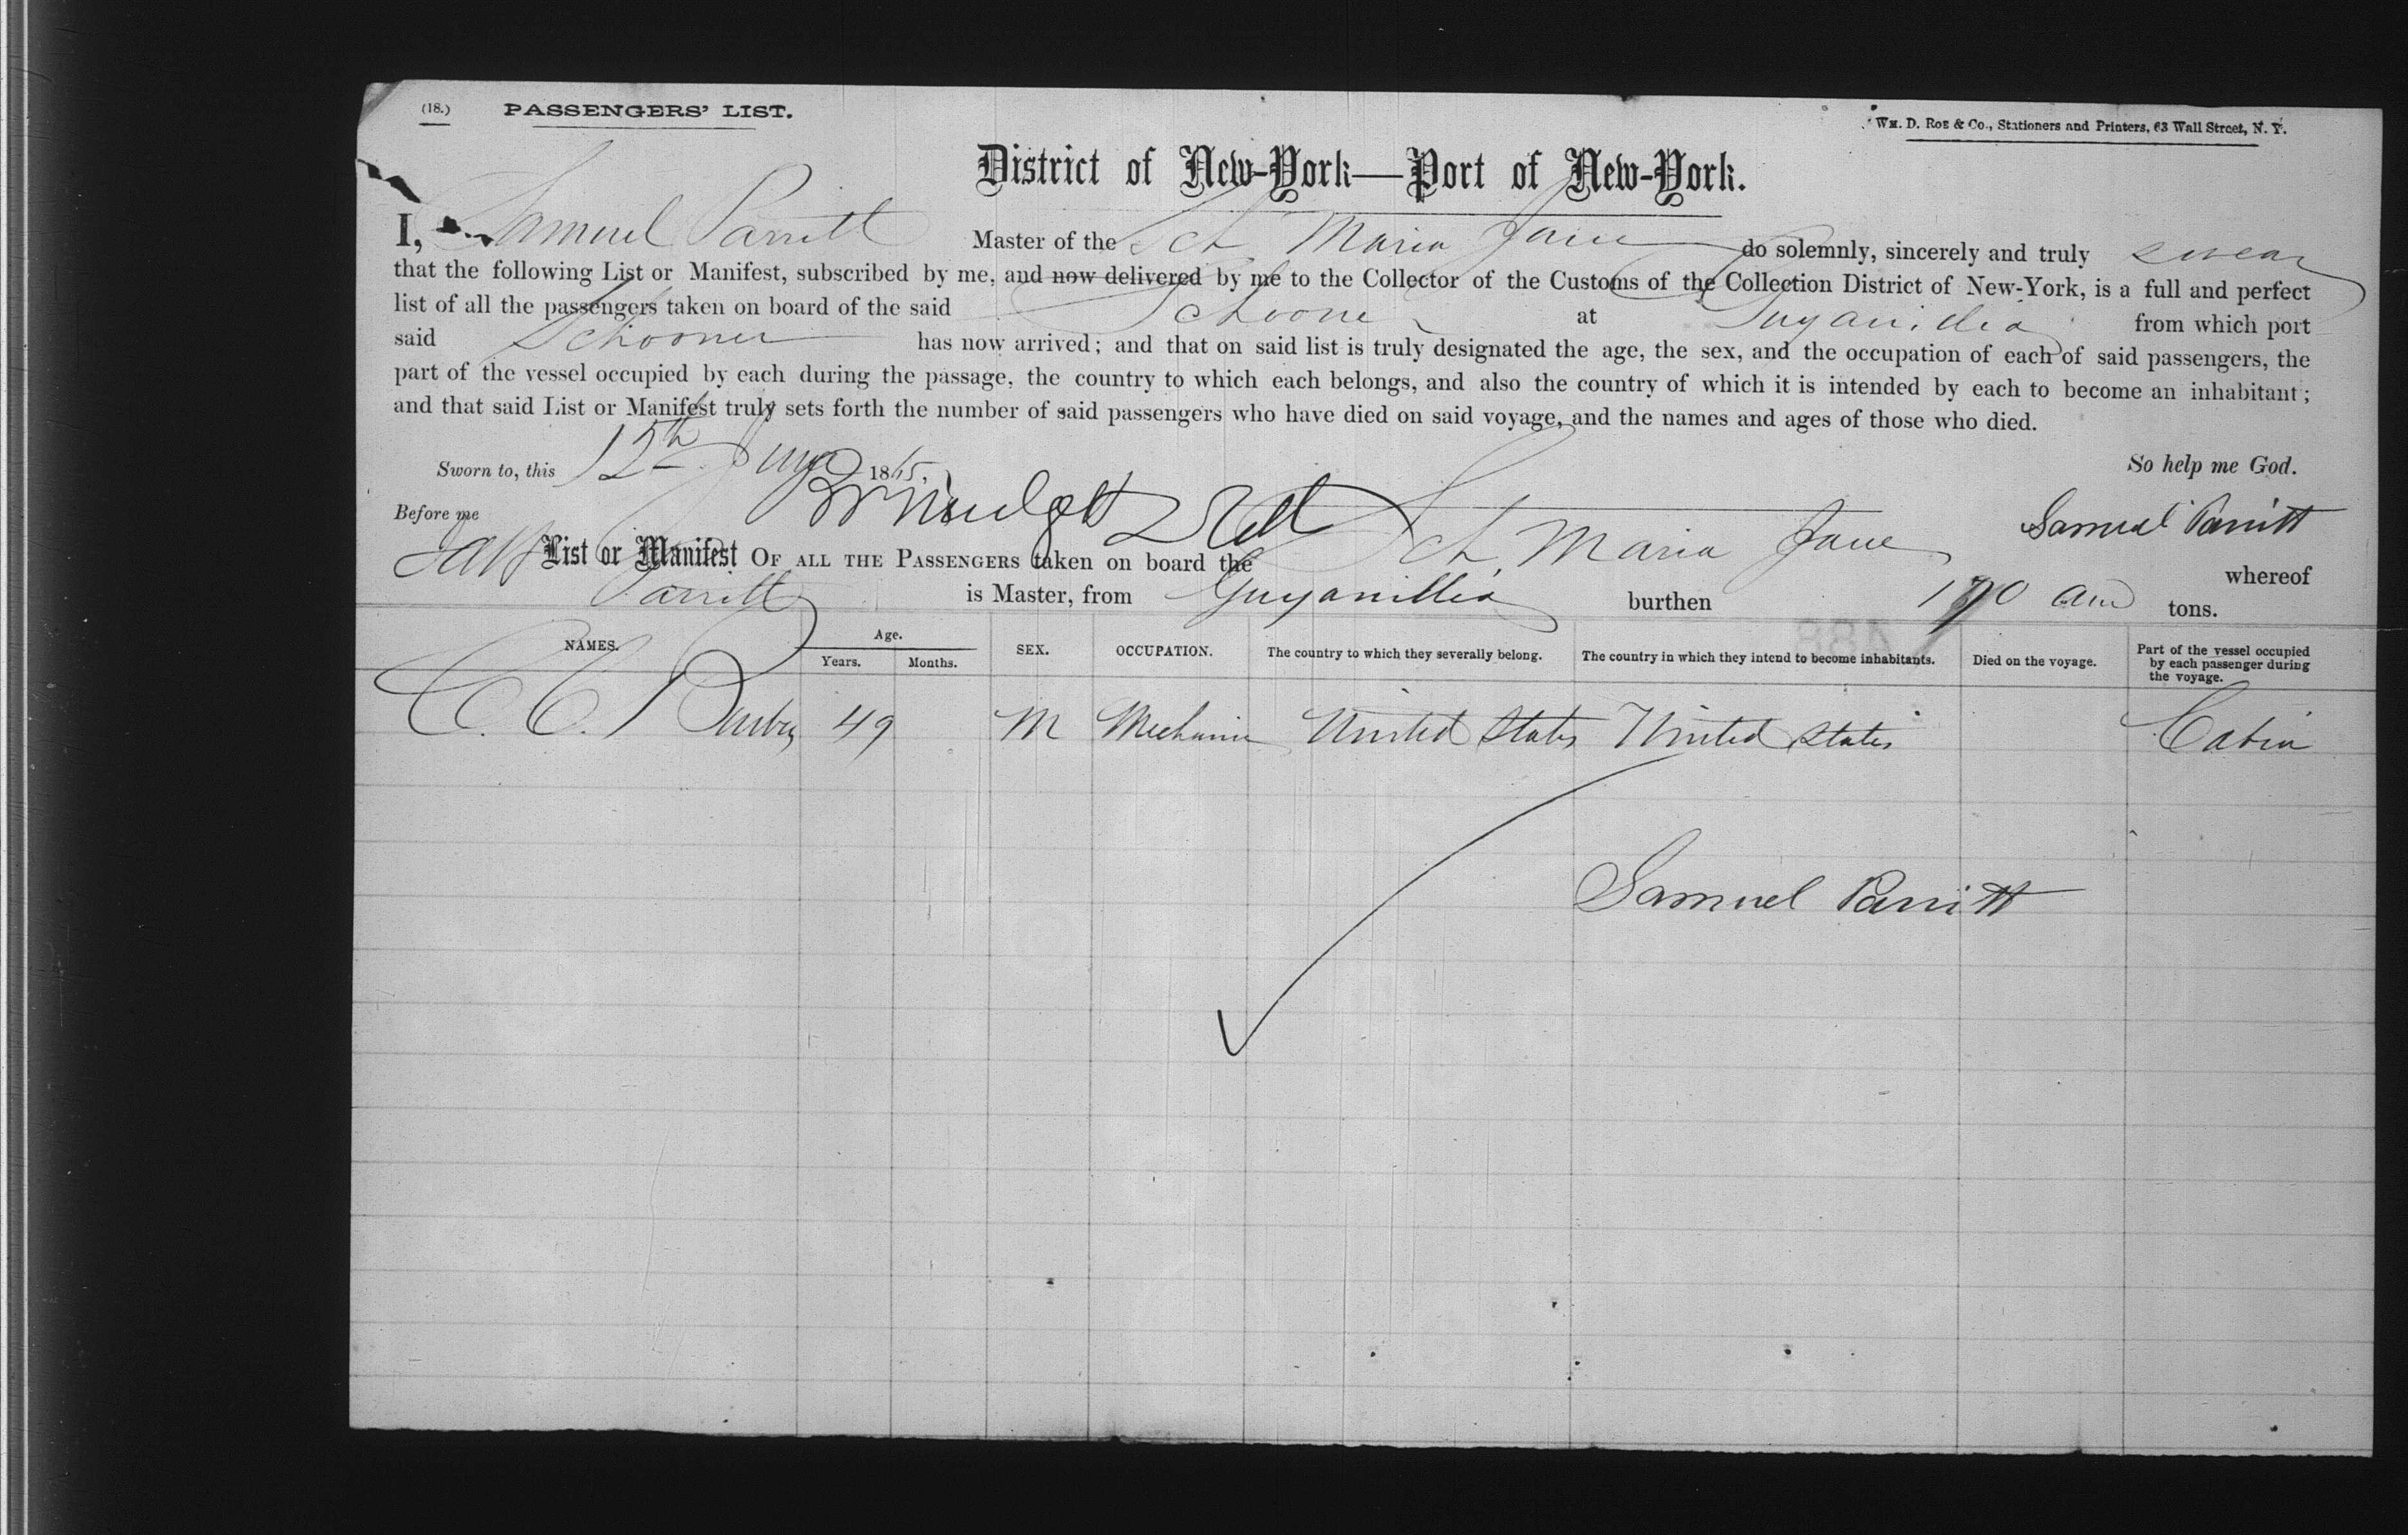 (18.) PASSENGERS' LIST.
WM. D. ROE & CO., Stationers and Printers, 63 Wall Street, N. Y.
District of New-York—Port of New-York.
I, Samuel Parritt Master of the Sch Maria Jane do solemnly, sincerely and truly swear
that the following List or Manifest, subscribed by me, and now delivered by me to the Collector of the Customs of the Collection District of New-York, is a full and perfect
list of all the passengers taken on board of the said Schooner at Guyanillia from which port
said Schooner has now arrived; and that on said list is truly designated the age, the sex, and the occupation of each of said passengers, the
part of the vessel occupied by each during the passage, the country to which each belongs, and also the country of which it is intended by each to become an inhabitant;
and that said List or Manifest truly sets forth the number of said passengers who have died on said voyage, and the names and ages of those who died.
Sworn to, this 12th 1865, So help me God.
Before me Samuel Parritt
List or Manifest OF ALL THE PASSENGERS taken on board the Sch. Maria Jane whereof
Parritt is Master, from Guyanillia burthen tons.
NAMES. Age. Years. Months. SEX. OCCUPATION. The country to which they severally belong. The country in which they intend to become inhabitants. Died on the voyage. Part of the vessel occupied by each passenger during the voyage.
C. C. 49 M Mechanic United States United States Cabin
Samuel Parritt